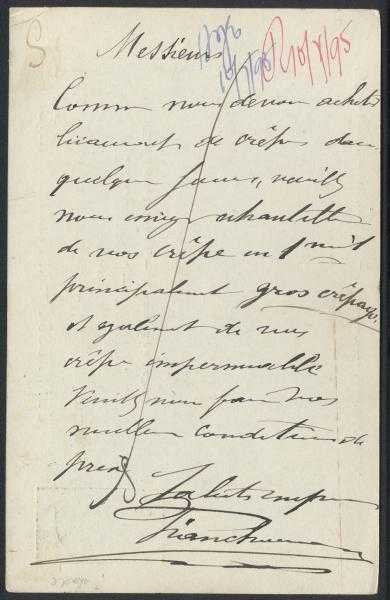 Messieurs
10/8/95
Comme nous devons acheter
beaucoup de crêpes dans
quelques jours, veuillez
nous envoyer échantillons
de vos crêpe en 1
principalement gros crêpage
et également de vos
crêpe imperméable
Veuillez nous faire vos
meilleurs conditions de
prix
Salut